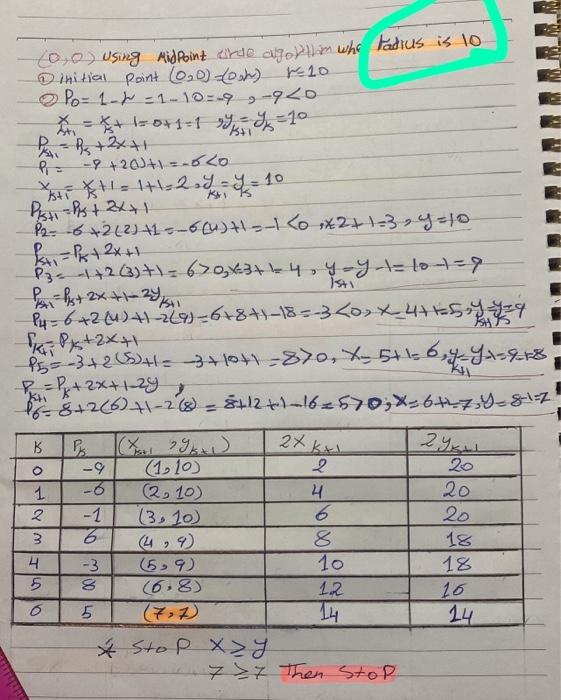 (0,0) using MidPoint circle algorithm whe radius is 10
① initial Point (0,0) = (0,r) r=10
② P0 = 1-r = 1-10=-9 , -9<0
Xk+1 = Xk + 1 = 0+1=1 , yk+1 = yk = 10
Pk+1 = Pk + 2x+1
P1 = -9 + 2(1)+1 = -6<0
Xk+1 = Xk+1 = 1+1=2, yk+1 = yk = 10
Pk+1 = Pk + 2x+1
P2 = -6 + 2(2)+1 = -6(4)+1 = -1<0, x=2+1=3, y=10
Pk+1 = Pk + 2x+1
P3 = -1+2(3)+1 = 6>0, x=3+1=4, yk+1=y-1=10-1=9
Pk+1 = Pk + 2x+1-2yk+1
P4 = 6+2(4)+1-2(9) = 6+8+1-18 = -3<0, x=4+1=5, yk+1=yk=9
Pk+1 = Pk + 2x+1
P5 = -3+2(5)+1 = -3+10+1 = 8>0, x=5+1=6, yk+1=y-1=9-1=8
Pk+1 = Pk + 2x+1-2y
P6 = 8+2(6)+1-2(8) = 8+12+1-16 = 5>0, x=6+1=7, y=8-1=7
K Pk (Xk+1 , yk+1) 2Xk+1 2yk+1
0 -9 (1,10) 2 20
1 -6 (2,10) 4 20
2 -1 (3,10) 6 20
3 6 (4,9) 8 18
4 -3 (5,9) 10 18
5 8 (6,8) 12 16
6 5 (7,7) 14 14
* Stop X ≥ y
7 ≥ 7 Then Stop